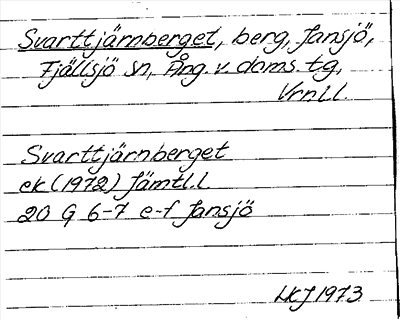 Svarttjärnberget, berg, Jansjö,
Fjällsjö sn, Ång. v. doms. tg,
Vrnl l.
Svarttjärnberget
ek (1972) Jämtl. l
20 G 6-7 e-f Jansjö
LKJ 1973